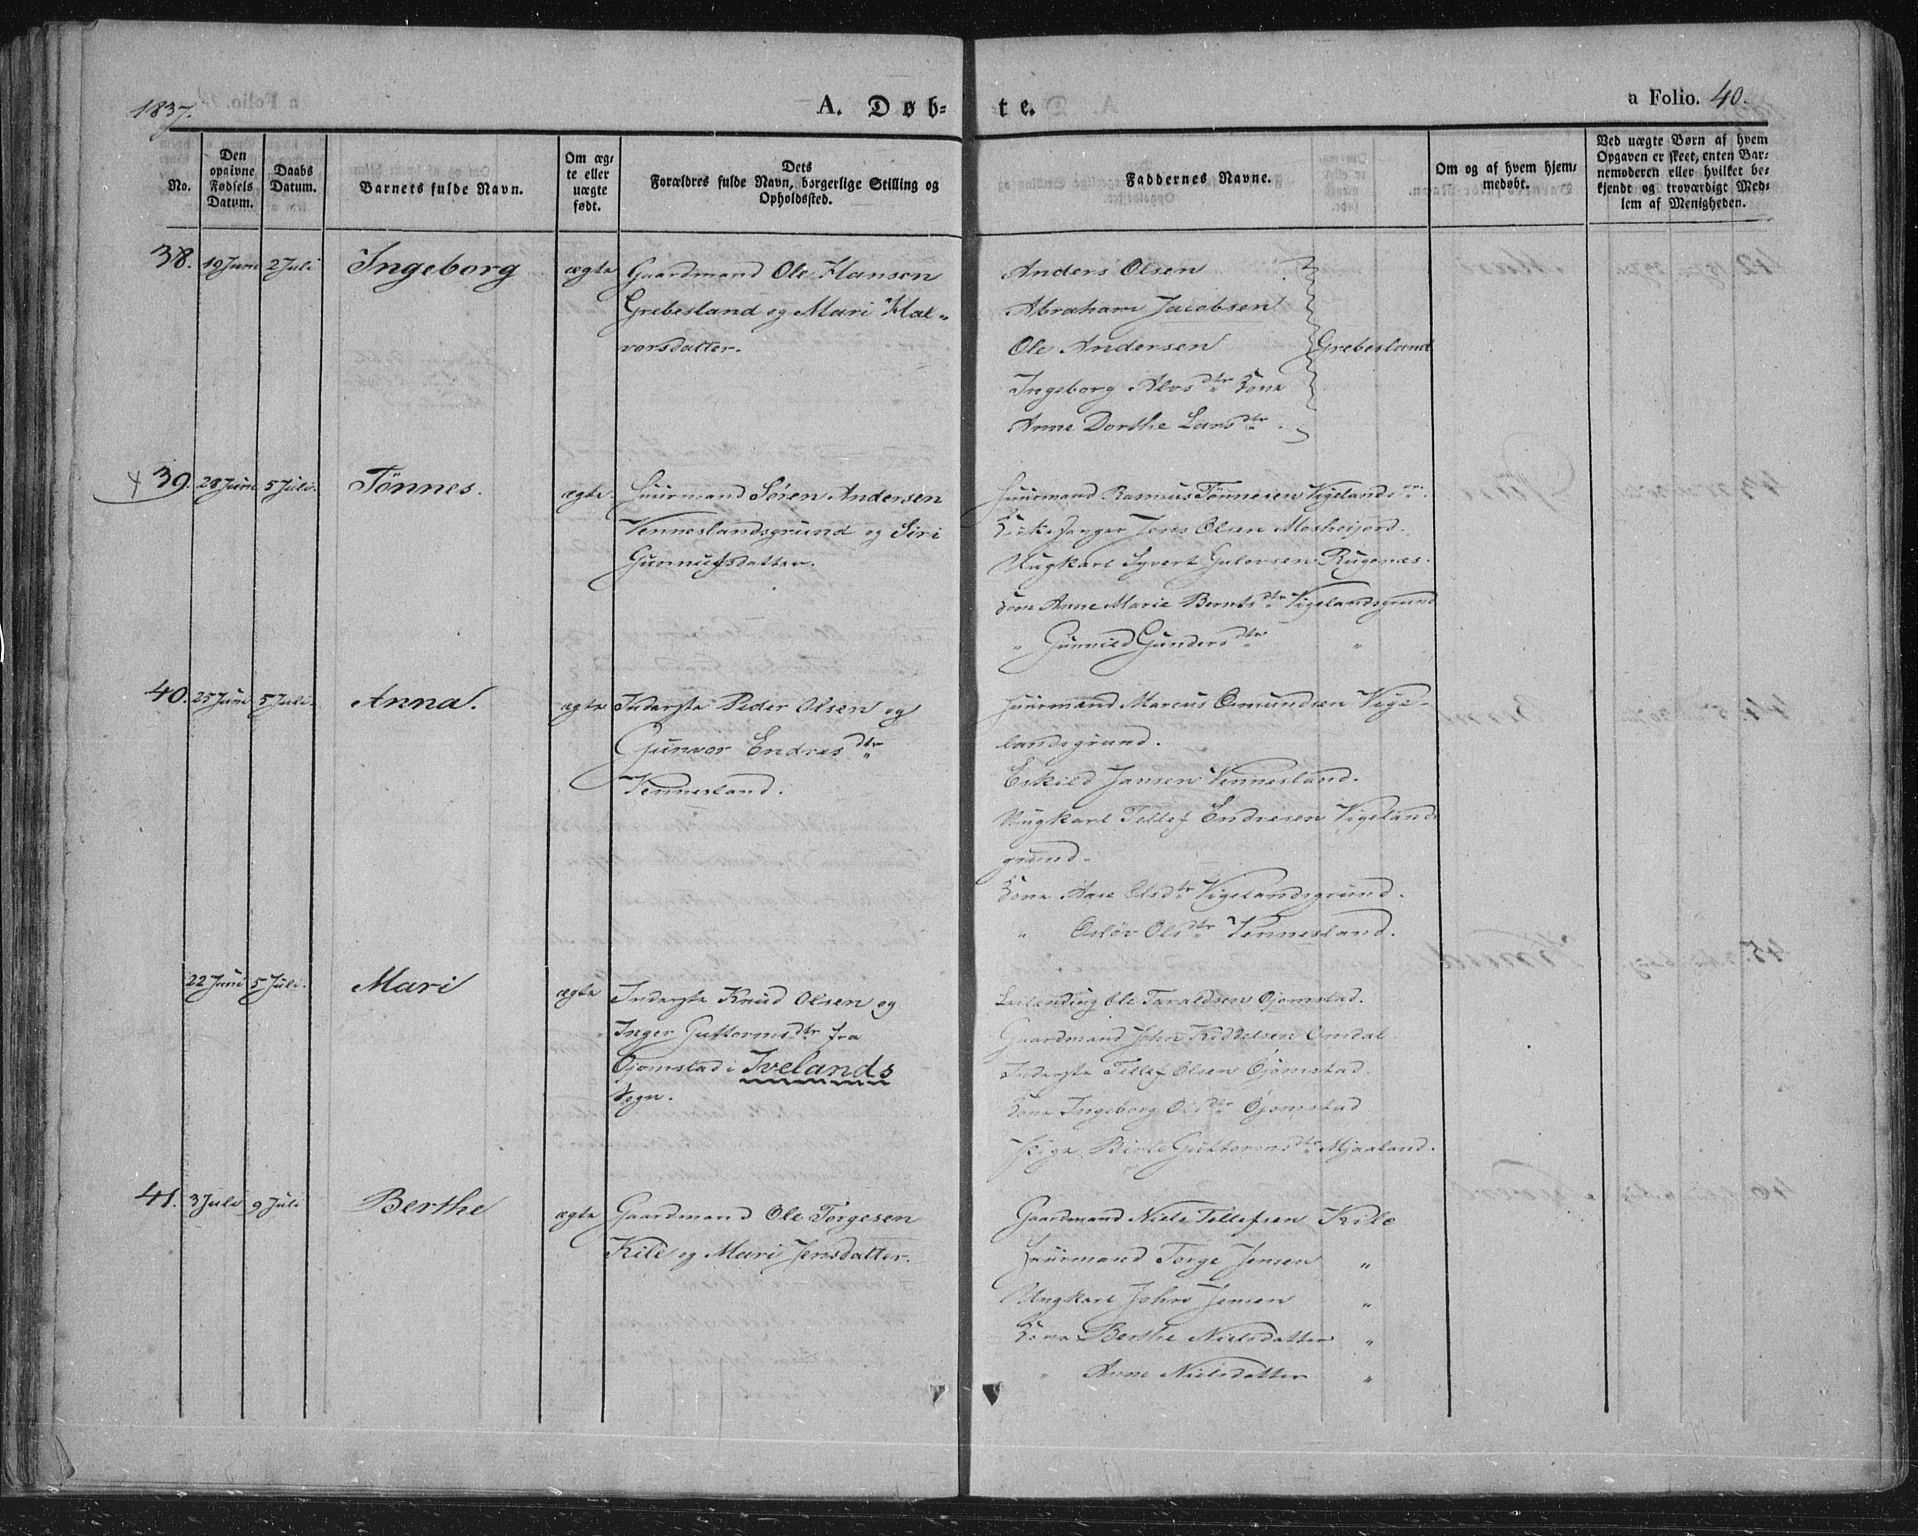 1837.
A. Døb-
te.
a Folio. 40.
No.
Den opgivne Fødsels Datum.
Daabs Datum.
Barnets fulde Navn.
Om ægte eller uægte født.
Dets
Forældres fulde Navn, borgerlige Stilling og
Opholdssted.
Faddernes Navne.
Om og af hvem hjem-
medøbt.
Ved uægte Børn af hvem
Opgaven er skeet, enten Bar-
nemoderen eller hvilket be-
kjendt og troværdigt Med-
lem af Menigheden.
38. 19 Juni 2 Juli Ingeborg ægte Gaardmand Ole Hansen
Grebesland og Mari Hal-
vorsdatter.
Anders Olsen
Abraham Jacobsen
Ole Andersen Grebesland
Ingeborg Alvsdtr Kone
Anne Dorthe Larsdtr.
39. 28 Juni 5 Juli. Tønnes. ægte Huurmand Søren Andersen
Venneslandsgrund og Siri
Gunnufsdatter.
Huurmand Rasmus Tønnesen Vigelandsgr.
Jens Olsen Mosheijord.
Ungkarl Syvert Gulovsen Rugenes.
Kone Anne Marie Berntsdtr Vigelandsgrund
" Gunnild Gundersdtr "
40. 25 Juni 5 Juli. Anna. ægte Inderste Peder Olsen og
Gunvor Endresdtr
Vennesland.
Huurmand Marcus Osmundsen Vige-
landsgrund.
Eskild Jansen Vennesland.
Ungkarl Tellef Endresen Vigelands
grund.
Kone Aase Olsdtr Vigelandsgrund.
" Osløv Olsdtr Vennesland.
22 Juni 5 Juli. Mari ægte Inderste Knud Olsen og
Inger Guttormsdtr fra
Øjomstad i Ivelands
Sogn.
Leilænding Ole Taraldsen Øjomstad.
Gaardmand John Kiddelsen Omdal
Inderste Tellef Olsen Øjomstad.
Kone Ingeborg Olsdtr Øjomstad
Pige Birte Guttormsdtr Mjaaland.
41. 3 Juli 9 Juli Berthe ægte Gaardmand Ole Torgesen
Kile og Mari Jensdatter.
Gaardmand Niels Tellefsen Kile
Huurmand Torge Jensen "
Ungkarl John Jensen "
Kone Berthe Nielsdatter "
" Anne Nielsdatter "